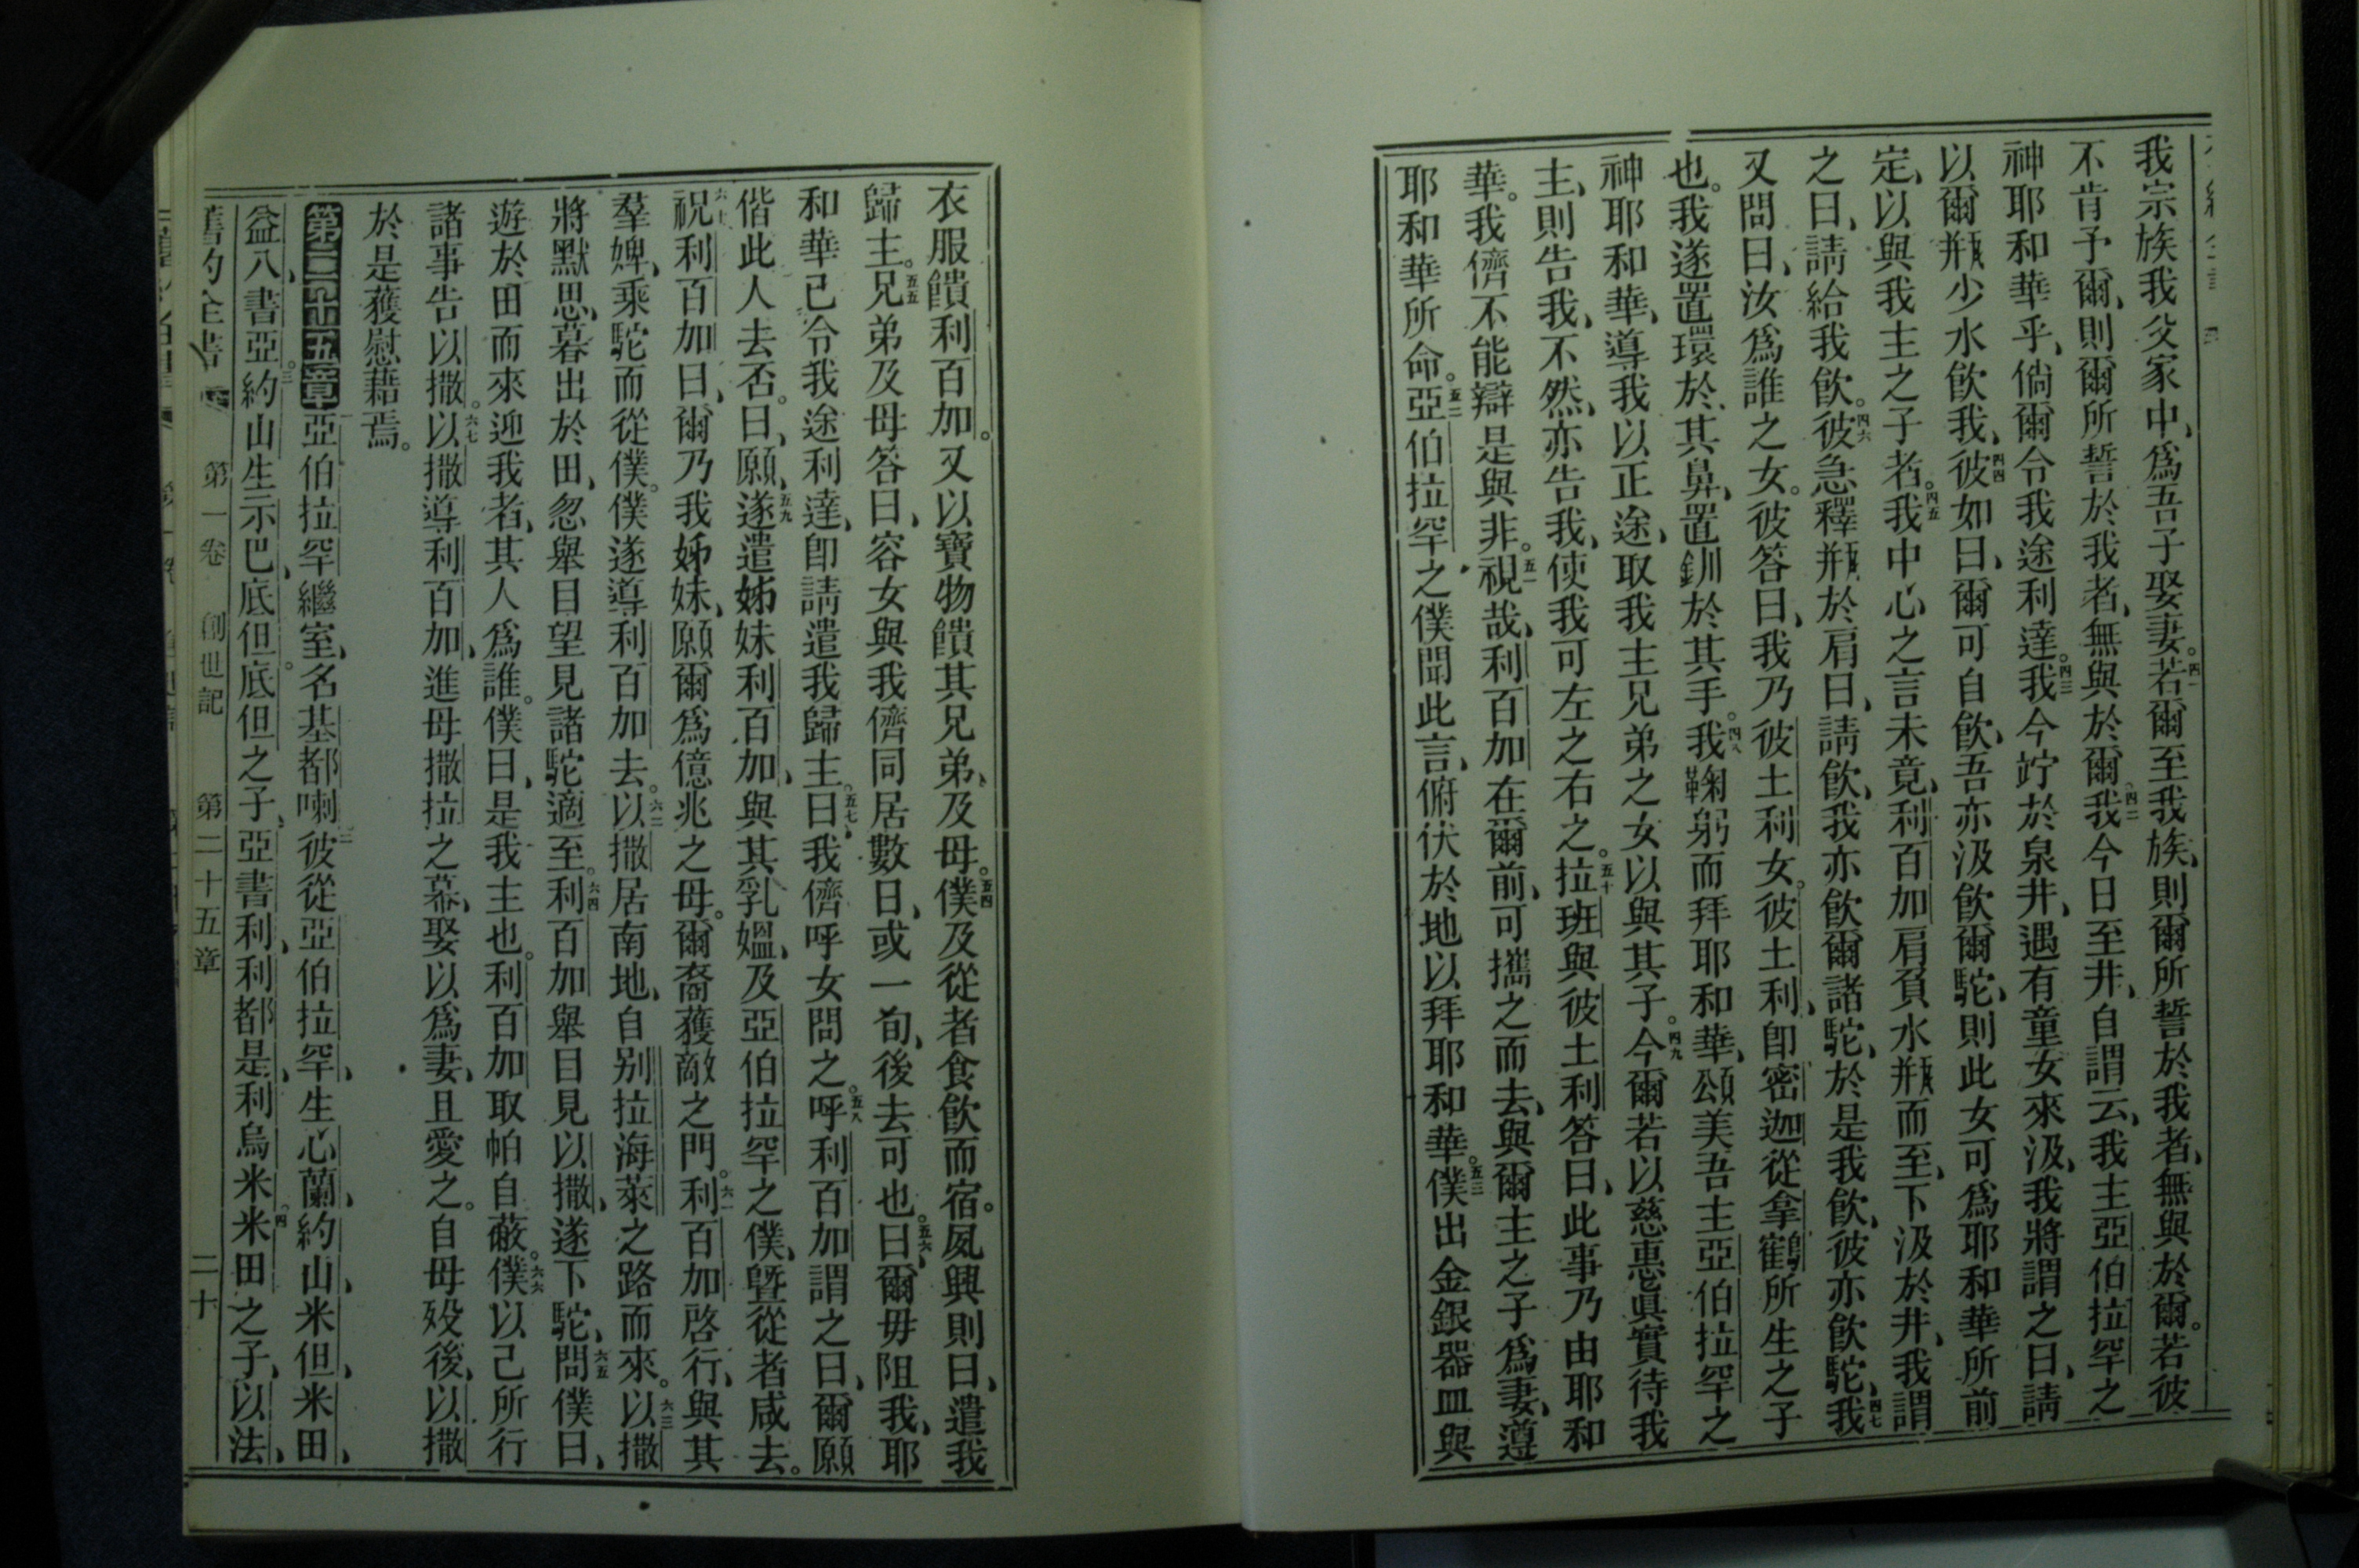 我宗族我父家中、爲吾子娶妻。四一若爾至我族、則爾所誓於我者、無與於爾。若彼
不肯予爾、則爾所誓於我者、無與於爾。四二我今日至井、自謂云、我主亞伯拉罕之
神耶和華乎、倘爾令我途利達。四三我今竚於泉井、遇有童女來汲、我將謂之曰、請
以爾瓶少水飮我、四四彼如曰、爾可自飮、吾亦汲飮爾駝、則此女可爲耶和華所前
定、以與我主之子者。四五我中心之言未竟、利百加肩負水瓶而至、下汲於井、我謂
之曰、請給我飮。四六彼急釋瓶於肩曰、請飮、我亦飮爾諸駝、於是我飮、彼亦飮駝、四七我
又問曰、汝爲誰之女。彼答曰、我乃彼土利女。彼土利、卽密迦從拿鶴所生之子
也。我遂置環於其鼻、置釧於其手。四八我鞠躬而拜耶和華、頌美吾主亞伯拉罕之
神耶和華、導我以正途、取我主兄弟之女以與其子。四九今爾若以慈惠眞實待我
主、則告我、不然、亦告我、使我可左之右之。五十拉班與彼土利答曰、此事乃由耶和
華。我儕不能辯是與非。五一視哉、利百加在爾前、可攜之而去、與爾主之子爲妻、遵
耶和華所命。五二亞伯拉罕之僕聞此言、俯伏於地以拜耶和華。五三僕出金銀器皿與
衣服饋利百加。又以寶物饋其兄弟、及母。五四僕及從者食飮而宿。夙興則曰、遣我
歸主。五五兄弟及母答曰、容女與我儕同居數日、或一旬、後去可也。五六曰、爾毋阻我、耶
和華已令我途利達、卽請遣我歸主。五七曰、我儕呼女問之。五八呼利百加謂之曰、爾願
偕此人去否。曰、願、五九遂遣姊妹利百加、與其乳媼、及亞伯拉罕之僕、曁從者咸去。
六十祝利百加曰、爾乃我姊妹、願爾爲億兆之母。爾裔獲敵之門。六一利百加啓行、與其
羣婢、乘駝而從僕。僕遂導利百加去。六二以撒居南地、自別拉海萊之路而來。六三以撒
將默思、暮出於田、忽舉目望見諸駝適至。六四利百加舉目見以撒、遂下駝、六五問僕曰、
遊於田而來迎我者、其人爲誰。僕曰、是我主也。利百加取帕自蔽。六六僕以己所行
諸事告以撒。六七以撒導利百加、進母撒拉之幕、娶以爲妻、且愛之。自母歿後、以撒
於是獲慰藉焉。
第二十五章 亞伯拉罕繼室、名基都喇、二彼從亞伯拉罕、生心蘭、約山、米但、米田、
益八、書亞。三約山生示巴、底但。底但之子、亞書利、利都是、利烏米。四米田之子、以法、
舊約全書 第一卷 創世記 第二十五章 二十